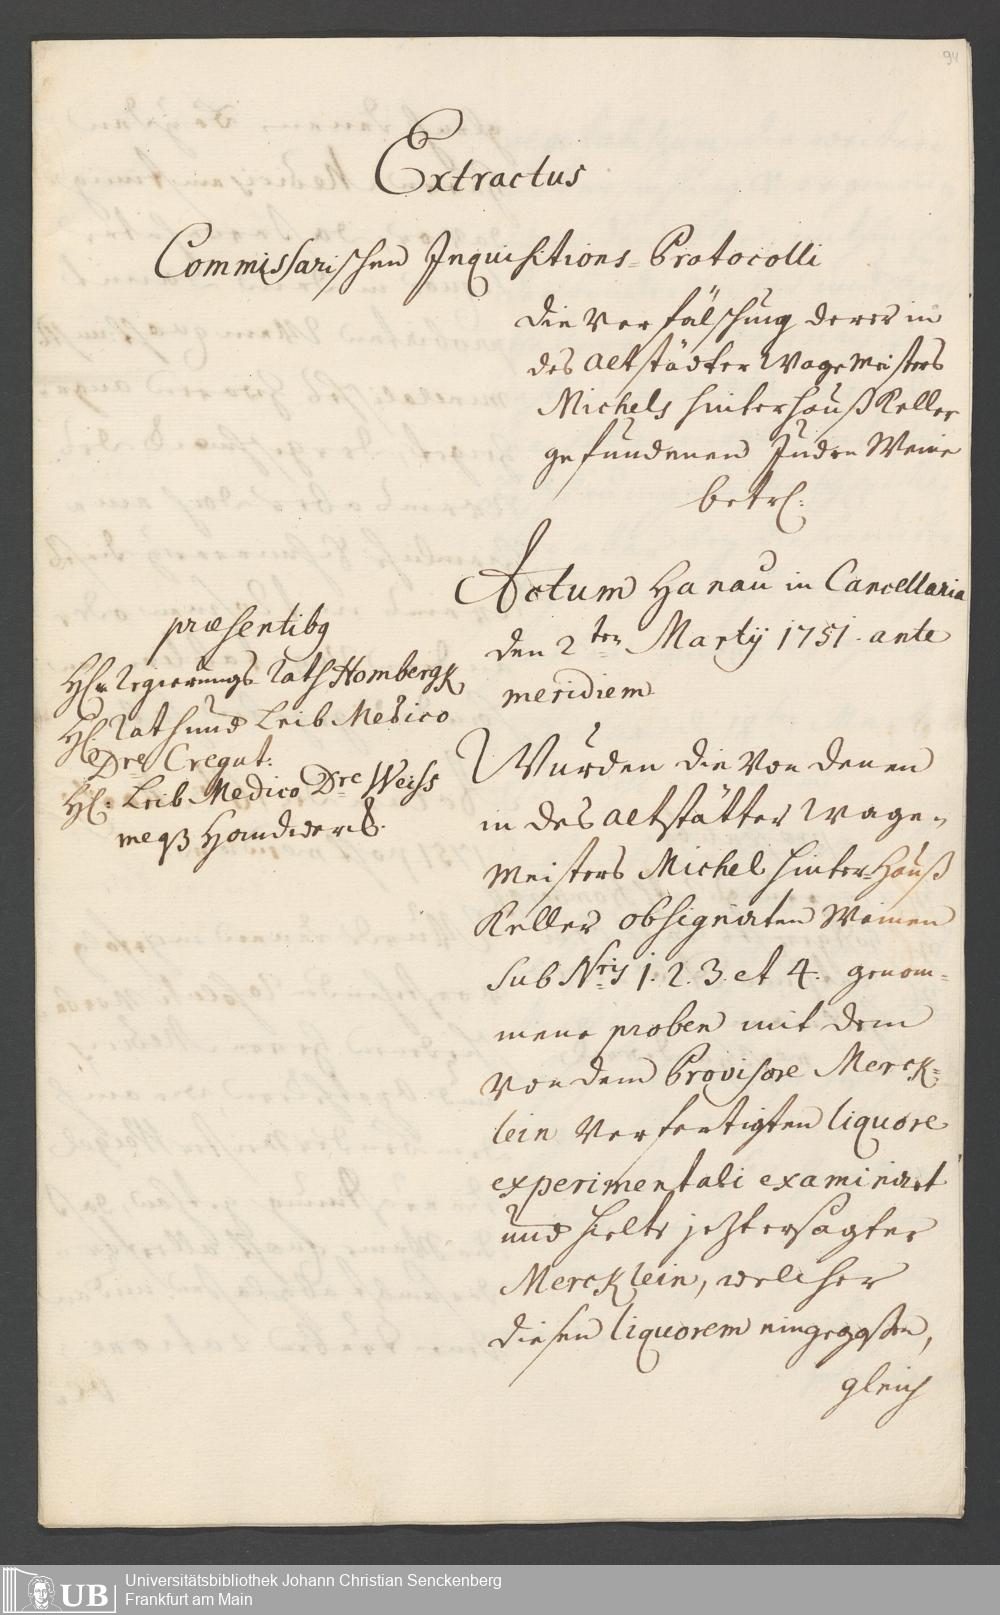 94
Extractus
Commissarischen Inquisitions-Protocolli
die Verfälschung derer in
des Altstädter Wagemeisters
Michels hinterhauß Keller
gefundenen Juden Weine
betrl:
Actum Hanau in Cancellaria
den 2ten Martÿ 1751. ante
meridiem
præsentibg
H. Regierungs Rath Hombergk
H. Rath und Leib Medico
Dre Cregut:
H: Leib Medico Dre Weiss
meqꝫ
Wurden die von denen
in des Altstätter Wage-
meisters Michel hinter-Hauß
Keller obsignirten Weinen
sub Nris 1. 2. 3. et 4. genom-
mene proben mit dem
von dem Provisore Merck-
lein verfertigten liquore
experimentali examiniret
und hielte jetztersagter
Mercklein, welcher
diesen liquorem eingegossen,
gleich
UB
Universitätsbibliothek Johann Christian Senckenberg
Frankfurt am Main